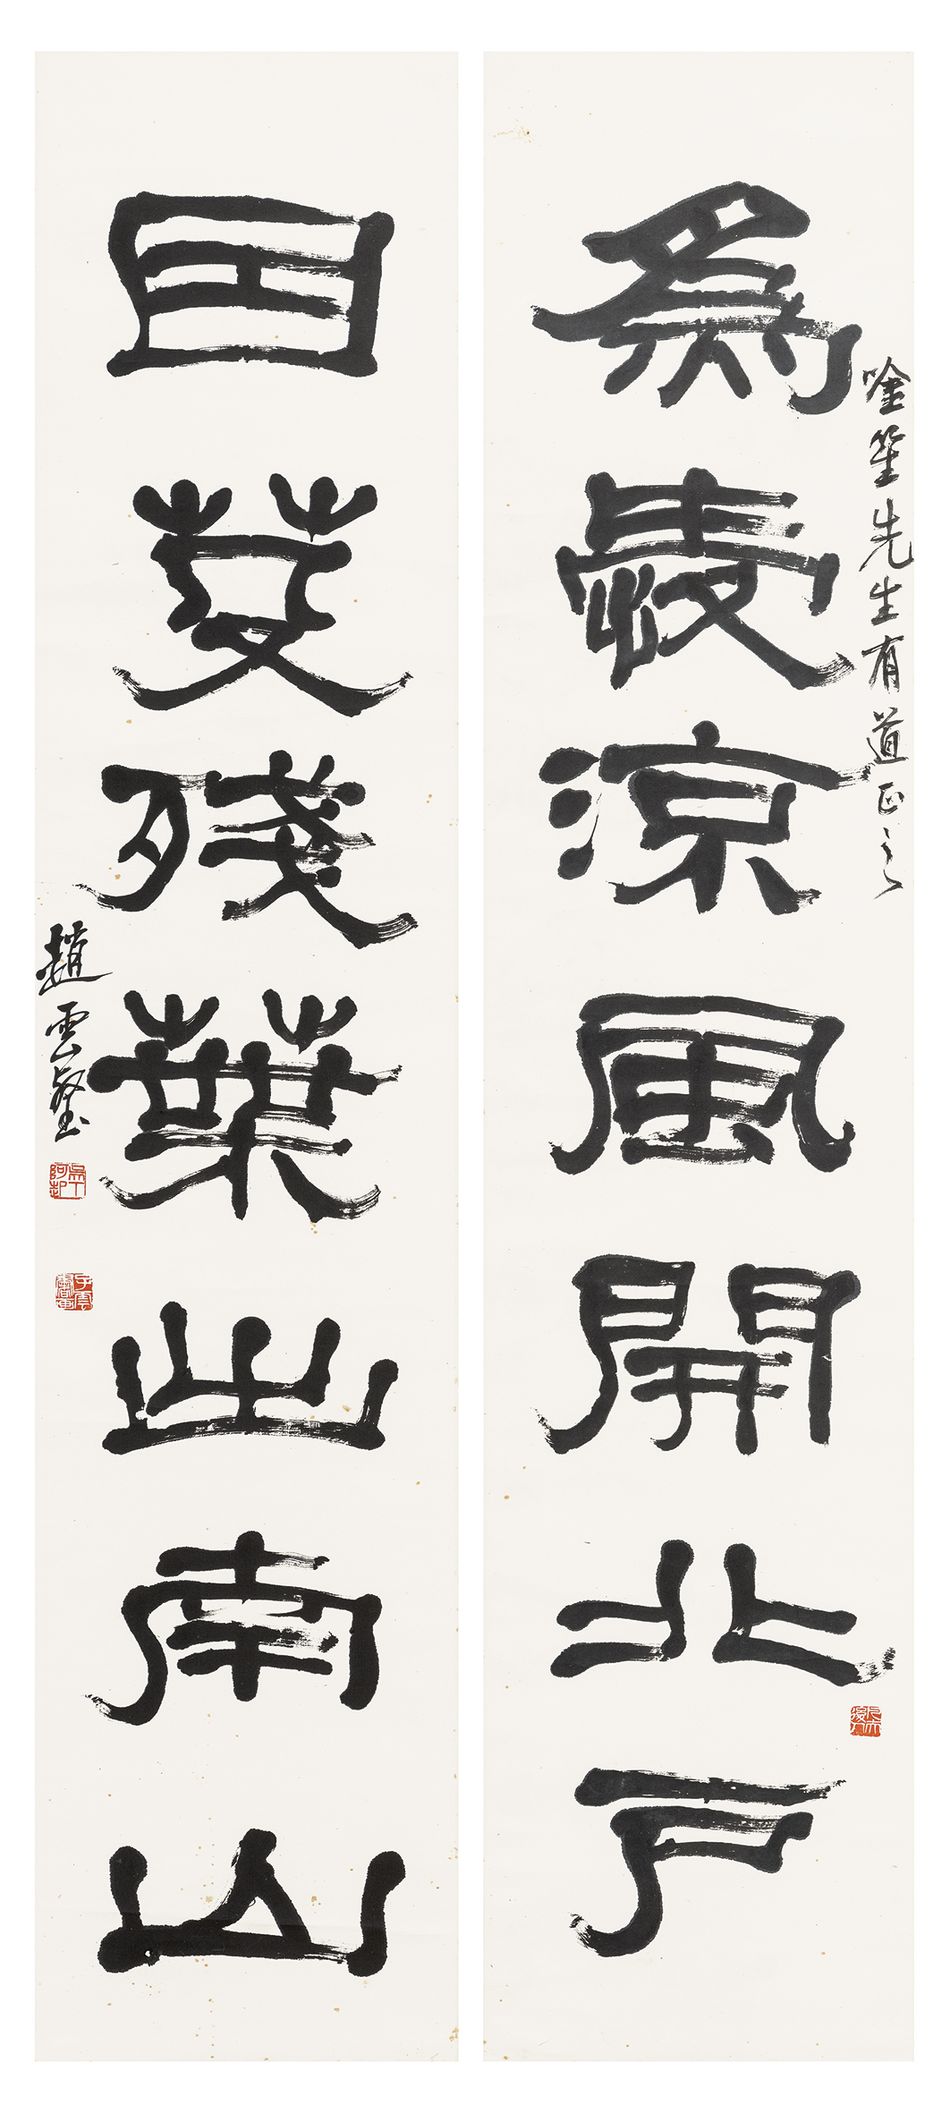 唫笙先生有道正之
為愛涼風開北戶
因芟殘葉出南山
趙雲壑